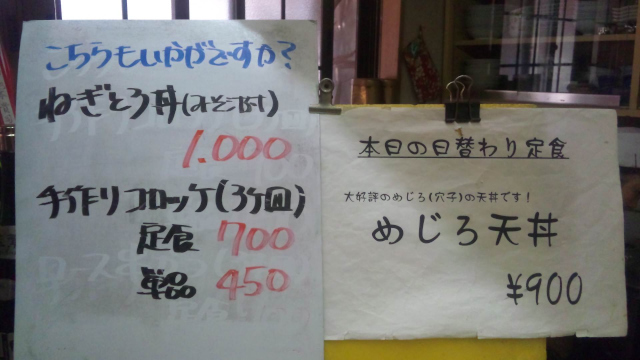 こちらもいかがですか?
ねぎとろ丼(みそ汁付)
1.000
手作りコロッケ(3ケ皿)
定食 700
単品 450
本日の日替わり定食
大好評のめじろ(穴子)の天丼です!
めじろ天丼
¥900